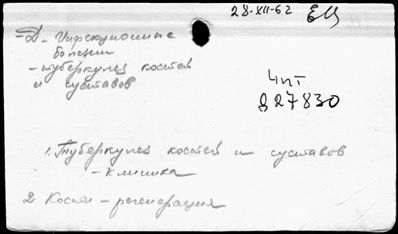 28-XII-62 ЕЦ
-Д- Инфекционные
болезни
- туберкулез костей
и суставов
Чит
Д27830
1. Туберкулез костей и суставов
- клиника
2 Кости - регенерация